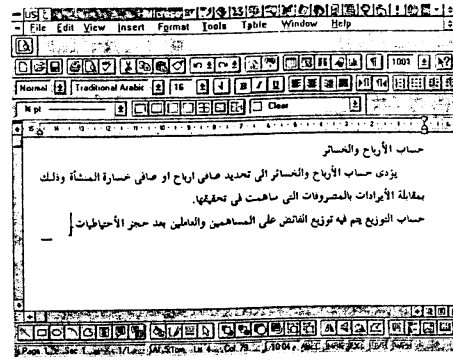 File Edit View Insert Format Tools Table Window Help
100%
Normal Traditional Arabic 16 B I U
¾ pt Clear
حساب الأرباح والخسائر
يؤدى حساب الأرباح والخسائر الى تحديد صافى ارباح او صافى خسارة المنشأة وذلك
بمقابلة الأيرادات بالمصروفات التى ساهمت فى تحقيقها.
حساب التوزيع يتم فيه توزيع الفائض على المساهمين والعاملين بعد حجز الأحتياطيات
Page Sec 1 1/1 Ln 4 Col 79 10:04